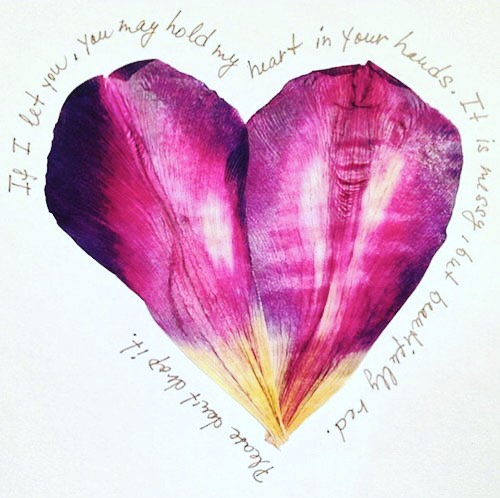 If I let you, you may hold my heart in your hands. It is messy, but beautifully red.
Please don't drop it.